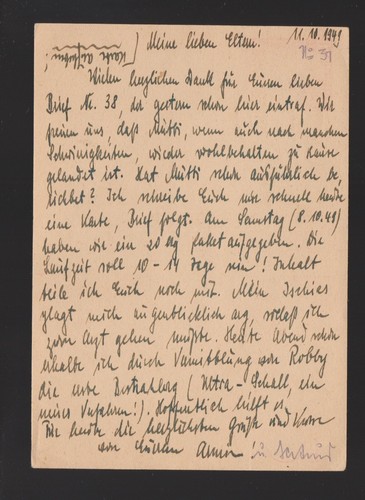 11.10.1949
No 31
(Karte aufheben!)
Meine lieben Eltern!
Vielen herzlichen Dank für Euren lieben
Brief Nr. 38, der gestern schon hier eintraf. Wir
freuen uns, daß Mutti, wenn auch nach manchen
Schwierigkeiten, wieder wohlbehalten zu Hause
gelandet ist. Hat Mutti schon ausführlich be,
richtet? Ich schreibe Euch nur schnell heute
eine Karte, Brief folgt. Am Samstag (8.10.49)
haben wir ein 20 kg Paket aufgegeben. Die
Laufzeit soll 10-14 Tage sein! Inhalt
teile ich Euch noch mit. Mein Ischias
plagt mich augenblicklich arg, sodaß ich
zum Arzt gehen mußte. Heute Abend schon
erhalte ich durch Vermittlung von Robby
die erste Bestrahlung (Ultra-Schall, ein
neues Verfahren!). Hoffentlich hilft es.
Für heute die herzlichsten Grüße und Küsse
von Eurem
u. Gertrud